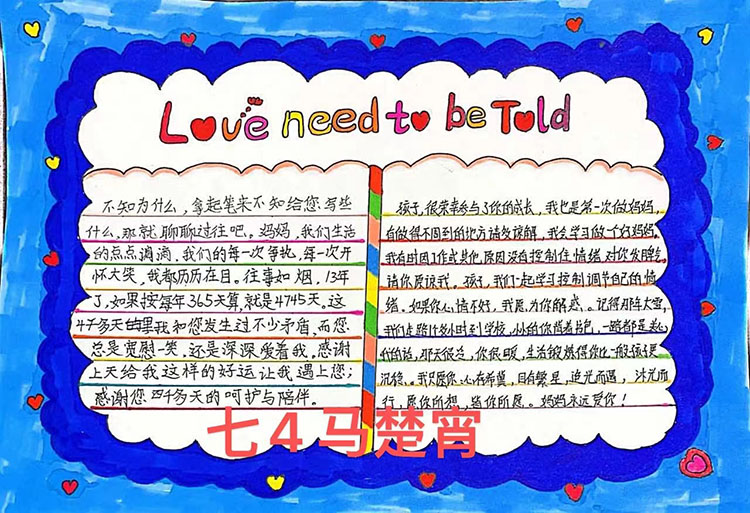 Love need to be Told
不知为什么，拿起笔来不知给您写些
什么，那就聊聊过往吧，妈妈，我们生活
的点点滴滴，我们的每一次争执，每一次开
怀大笑，我都历历在目。往事如烟，13年
了，如果按每年365天算，就是4745天。这
4千多天里我和您发生过不少矛盾，而您
总是宽慰一笑，还是深深爱着我，感谢
上天给我这样的好运让我遇上您；
感谢您四千多天的呵护与陪伴。
孩子，很荣幸参与了你的成长，我也是第一次做妈妈，
有做得不周到的地方请多谅解，我会学习做一个好妈妈，
我有时因工作或其他原因没有控制住情绪，对你发脾气
请你原谅我。孩子，我们一起学习控制调节自己的情
绪。如果你心情不好，我愿为你解惑。记得那年大雪，
我们走路什么时到学校，小小的你背着书包，一路都是
的说，那天很冷，你很暖，生活
沉稳。我只愿你，心存希望，目有繁星，追光而遇，沐光而
行，愿你所想，皆你所愿。妈妈永远爱你！
七4马楚宵